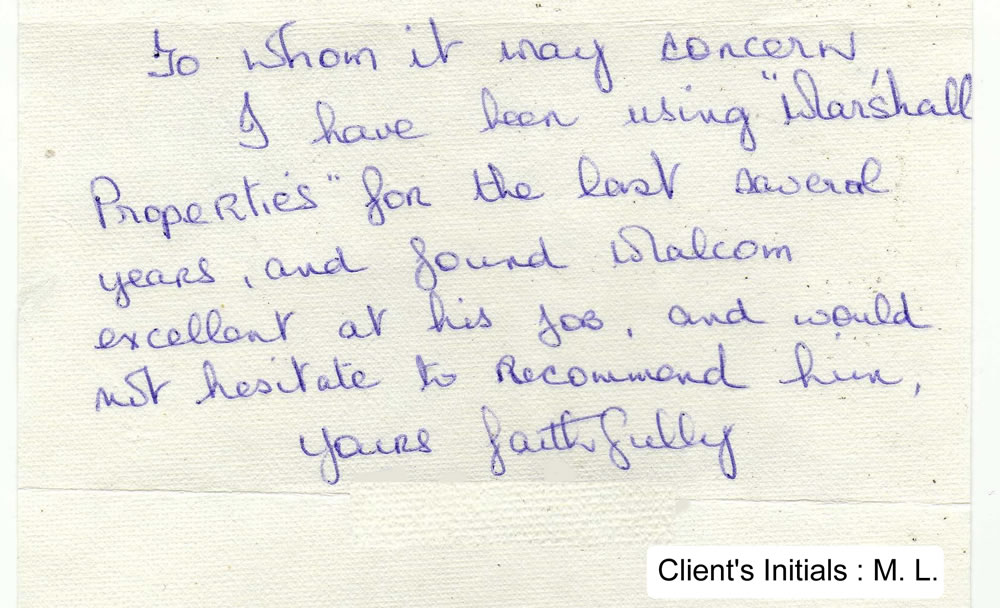 To whom it may concern
I have been using "Marshall
Properties" for the last several
years, and found Malcom
excellent at his job, and would
not hesitate to recommend him,
yours faithfully
Client's Initials : M. L.